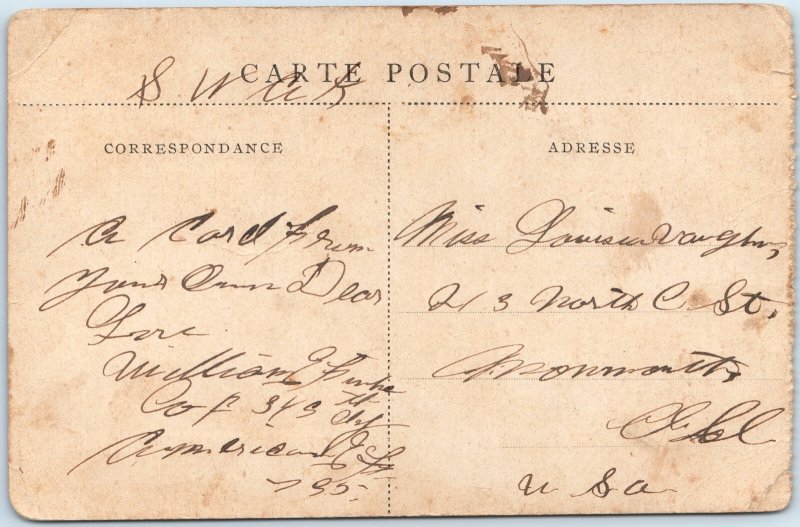 CARTE POSTALE
S W A K
CORRESPONDANCE
A Card from
Your Own Dear
Love
William J
Co F 343
American E F
795.
ADRESSE
Miss Louisa Vaughn,
213 North C St.
Monmouth,
Ill
U S a